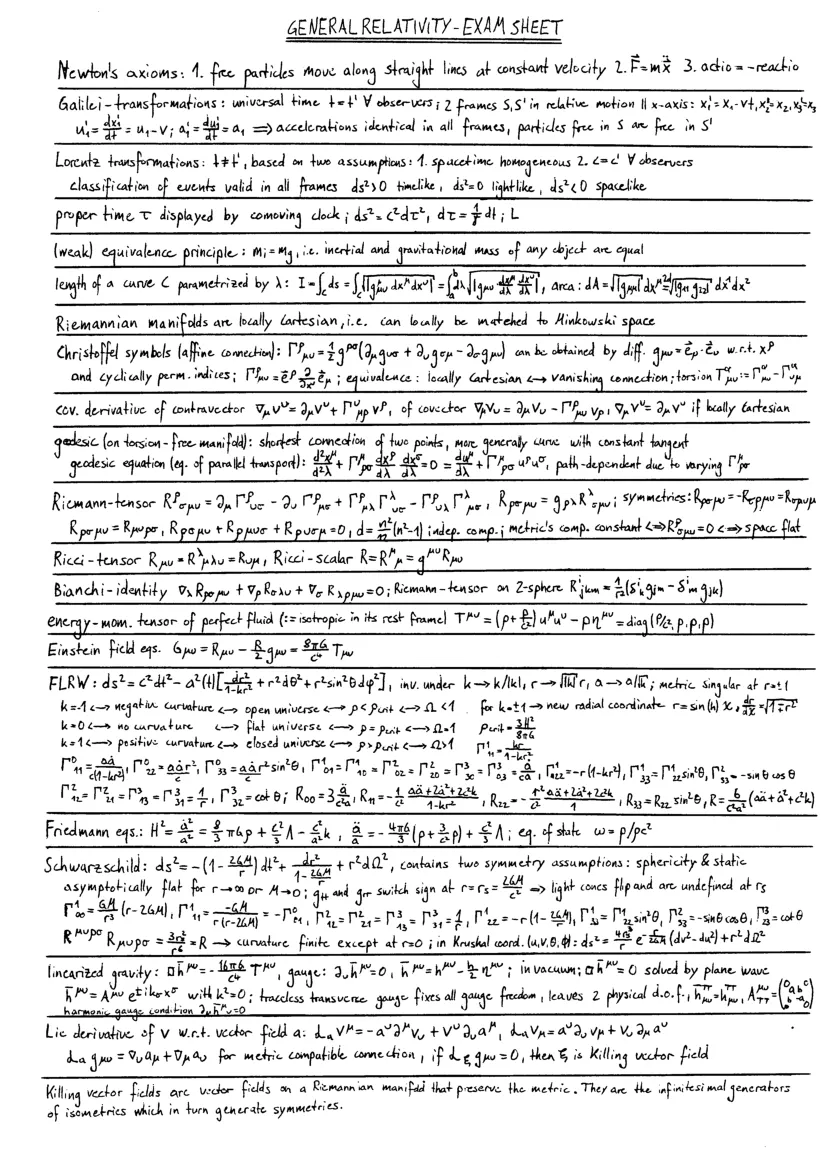 GENERAL RELATIVITY - EXAM SHEET
Newton's axioms: 1. free particles move along straight lines at constant velocity 2. F⃗=mẍ⃗ 3. actio = -reactio
Galilei-transformations: universal time t=t' ∀ observers; 2 frames S,S' in relative motion ∥ x-axis: x₁'=x₁-vt, x₂'=x₂, x₃'=x₃
u₁'=dx₁'/dt=u₁-v; a₁'=du₁'/dt=a₁ ⇒ accelerations identical in all frames, particles free in S are free in S'
Lorentz transformations: t≠t', based on two assumptions: 1. spacetime homogeneous 2. c=c' ∀ observers
classification of events valid in all frames ds²>0 timelike, ds²=0 lightlike, ds²<0 spacelike
proper time τ displayed by comoving clock; ds²=c²dτ², dτ=1/γ dt; L
(weak) equivalence principle: mᵢ=m_g, i.e. inertial and gravitational mass of any object are equal
length of a curve C parametrized by λ: I=∫_C ds=∫_C √|g_μν dx^μ dx^ν|=∫_a^b dλ√|g_μν dx^μ/dλ dx^ν/dλ|, area: dA=√|g_μμ| dx^μ =^{2d} √|g₁₁ g₂₂| dx¹dx²
Riemannian manifolds are locally Cartesian, i.e. can locally be matched to Minkowski space
Christoffel symbols (affine connection): Γ^ρ_μν=½g^ρσ(∂_μ g_νσ+∂_ν g_σμ-∂_σ g_μν) can be obtained by diff. g_μν=e⃗_μ·e⃗_ν w.r.t. x^ρ
and cyclically perm. indices; Γ^ρ_μν=e⃗^ρ ∂/∂x^ν e⃗_μ; equivalence: locally Cartesian ↔ vanishing connection; torsion T^α_μν:=Γ^α_μν-Γ^α_νμ
cov. derivative of contravector ∇_μ V^ν=∂_μ V^ν+Γ^ν_μρ V^ρ, of covector ∇_μ V_ν=∂_μ V_ν-Γ^ρ_μν V_ρ, ∇_μ V^ν=∂_μ V^ν if locally Cartesian
geodesic (on torsion-free manifold): shortest connection of two points, more generally curve with constant tangent
geodesic equation (eq. of parallel transport): d²x^μ/d²λ+Γ^μ_ρσ dx^ρ/dλ dx^σ/dλ=0=du^μ/dλ+Γ^μ_ρσ u^ρ u^σ, path-dependent due to varying Γ^μ_ρσ
Riemann-tensor R^ρ_σμν=∂_μ Γ^ρ_νσ-∂_ν Γ^ρ_μσ+Γ^ρ_μλ Γ^λ_νσ-Γ^ρ_νλ Γ^λ_μσ, R_ρσμν=g_ρλ R^λ_σμν; symmetries: R_ρσμν=-R_σρμν=R_σρνμ
R_ρσμν=R_μνρσ, R_ρσμν+R_ρμνσ+R_ρνσμ=0, d=n²/n(n²-1) indep. comp.; metric's comp. constant ⇔ R^ρ_σμν=0 ⇔ space flat
Ricci-tensor R_μν=R^λ_μλν=R_νμ, Ricci-scalar R=R^μ_μ=g^μν R_μν
Bianchi-identity ∇_λ R_ρσμν+∇_ρ R_σλμν+∇_σ R_λρμν=0; Riemann-tensor on 2-sphere R^i_jkm=1/r²(δ^i_k g_jm-δ^i_m g_jk)
energy-mom. tensor of perfect fluid (:=isotropic in its rest frame) T^μν=(ρ+p/c²)u^μ u^ν-pη^μν=diag(ρ/c², p, p, p)
Einstein field eqs. G_μν=R_μν-R/2 g_μν=8πG/c⁴ T_μν
FLRW: ds²=c²dt²-a²(t)[dr²/(1-kr²)+r²dθ²+r²sin²θdφ²], inv. under k→k/|k|, r→√|k| r, a→a/√|k|; metric singular at r=±1
k=-1 ↔ negative curvature ↔ open universe ↔ ρ<ρcrit ↔ Ω<1 for k=±1 → new radial coordinate r=sin(h) χ, dr/dχ=√(1∓r²)
k=0 ↔ no curvature ↔ flat universe ↔ ρ=ρcrit ↔ Ω=1 ρcrit=3H²/8πG
k=1 ↔ positive curvature ↔ closed universe ↔ ρ>ρcrit ↔ Ω>1 Γ¹₁₁=kr/(1-kr²)
Γ⁰₁₁=aȧ/c(1-kr²), Γ⁰₂₂=aȧr²/c, Γ⁰₃₃=aȧr²sin²θ/c, Γ¹₀₁=Γ¹₁₀=Γ²₀₂=Γ²₂₀=Γ³₃₀=Γ³₀₃=ȧ/ca, Γ¹₂₂=-r(1-kr²), Γ¹₃₃=Γ¹₂₂sin²θ, Γ²₃₃=-sinθcosθ
Γ²₁₂=Γ²₂₁=Γ³₁₃=Γ³₃₁=1/r, Γ³₃₂=cotθ; R₀₀=3ä/c²a, R₁₁=-1/c² (aä+2ȧ²+2c²k)/(1-kr²), R₂₂=-r²/c² (aä+2ȧ²+2c²k)/1, R₃₃=R₂₂sin²θ, R=6/c²a²(aä+ȧ²+c²k)
Friedmann eqs.: H²=ȧ²/a²=8/3 πGρ+c²/3 Λ-c²/a² k, ä/a=-4πG/3(ρ+3/c² p)+c²/3 Λ; eq. of state ω=p/ρc²
Schwarzschild: ds²=-(1-2GM/r)dt²+dr²/(1-2GM/r)+r²dΩ², contains two symmetry assumptions: sphericity & static
asymptotically flat for r→∞ or M→0; g_tt and g_rr switch sign at r=r_s=2GM/c² ⇒ light cones flip and are undefined at r_s
Γ¹₀₀=GM/r³(r-2GM), Γ¹₁₁=-GM/r(r-2GM)=-Γ⁰₀₁, Γ²₁₂=Γ²₂₁=Γ³₁₃=Γ³₃₁=1/r, Γ¹₂₂=-r(1-2GM/r), Γ¹₃₃=Γ¹₂₂sin²θ, Γ²₃₃=-sinθcosθ, Γ³₂₃=cotθ
R^μνρσ R_μνρσ=3r_s²/r⁶=R → curvature finite except at r=0; in Kruskal coord. (u,v,θ,φ): ds²=4r_s³/r e^(-r/2GM)(dv²-du²)+r²dΩ²
linearized gravity: □h̄^μν=-16πG/c⁴ T^μν, gauge: ∂_ν h̄^μν=0, h̄^μν=h^μν-h/2 η^μν; in vacuum: □h̄^μν=0 solved by plane wave
h̄^μν=A^μν e^(±ik_σ x^σ) with k²=0; traceless transverse gauge fixes all gauge freedom, leaves 2 physical d.o.f., h̄^TT_μν=h^TT_μν, A^μν_TT=(0 a b 0 / b -a 0)
harmonic gauge condition ∂_ν h̄^μν=0
Lie derivative of V w.r.t. vector field a: ℒ_a V^μ=-a^ν∂^μ V_ν+V^ν∂_ν a^μ, ℒ_a V_μ=a^ν∂_ν v_μ+V_ν∂_μ a^ν
ℒ_a g_μν=∇_ν a_μ+∇_μ a_ν for metric compatible connection, if ℒ_ξ g_μν=0, then ξ is Killing vector field
Killing vector fields are vector fields on a Riemannian manifold that preserve the metric. They are the infinitesimal generators
of isometries which in turn generate symmetries.